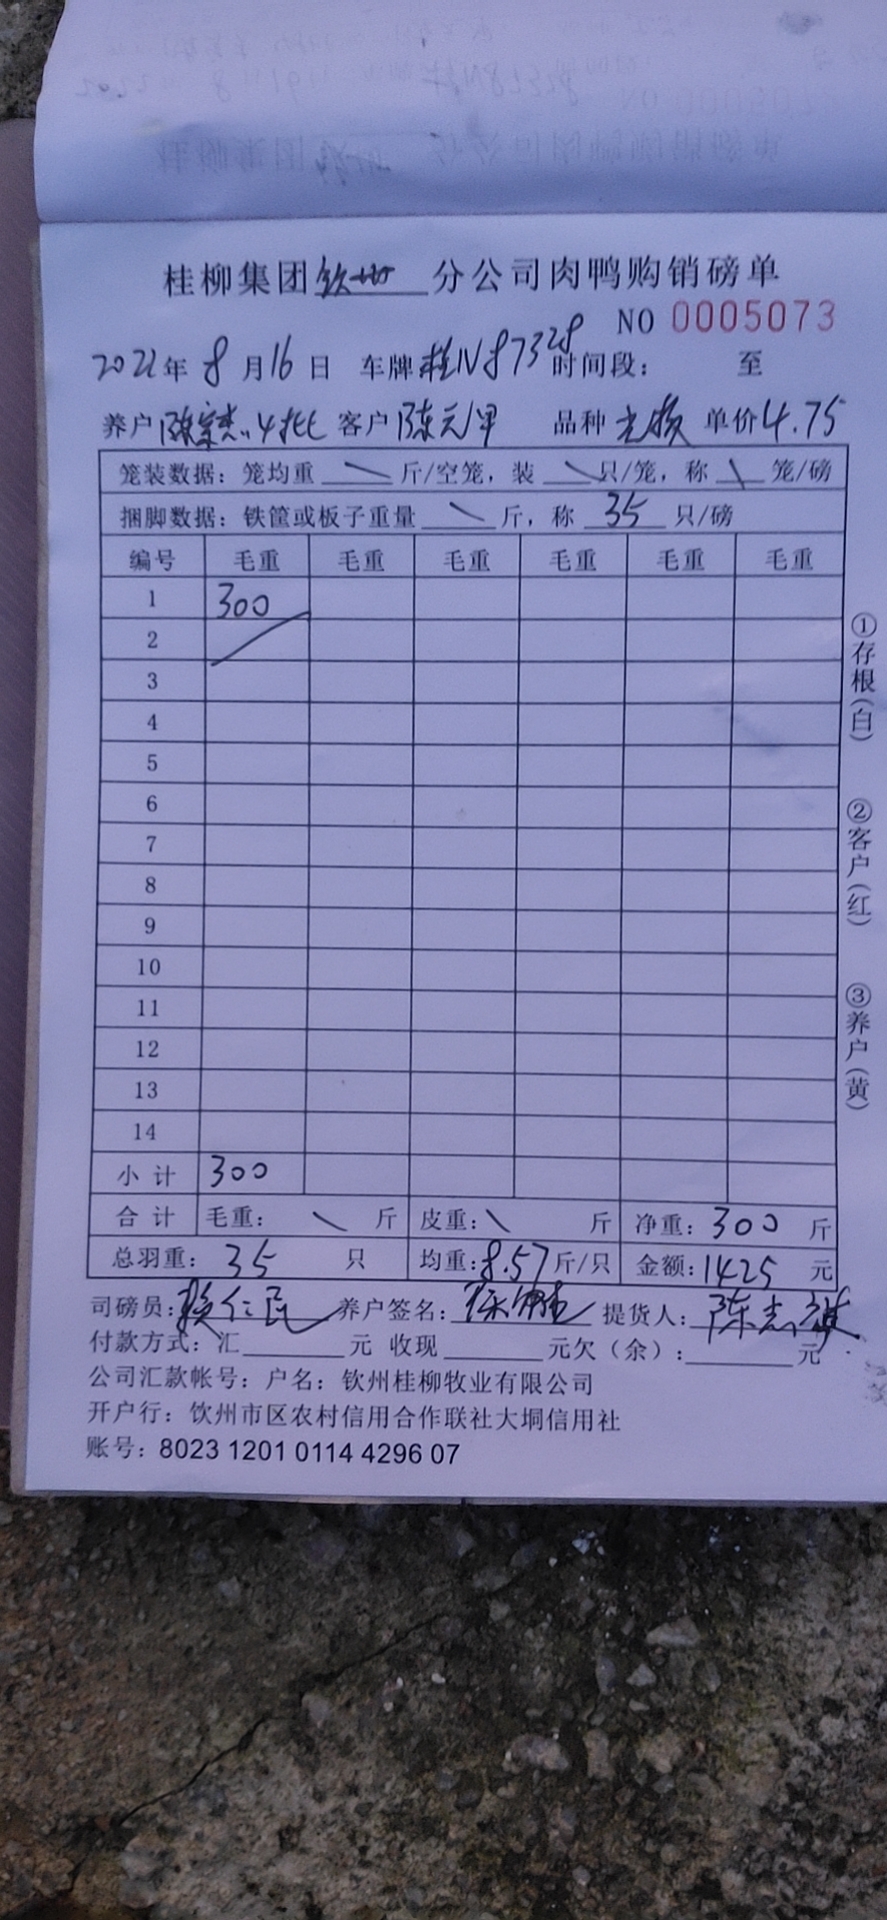 桂柳集团钦州分公司肉鸭购销磅单
NO 0005073
2021年8月16日 车牌桂N87328 时间段： 至
养户 4批 客户陈元甲 品种 单价4.75
笼装数据：笼均重 \ 斤/空笼，装 \ 只/笼，称 \ 笼/磅
捆脚数据：铁筐或板子重量 \ 斤，称 35 只/磅
编号 毛重 毛重 毛重 毛重 毛重 毛重
1 300
2
3
4
5
6
7
8
9
10
11
12
13
14
小计 300
合计 毛重： \ 斤 皮重：\ 斤 净重：300 斤
总羽重： 35 只 均重：8.57斤/只 金额：1425 元
司磅员：赖仁民 养户签名： 提货人：陈志
付款方式：汇 元 收现 元欠（余）： 元
公司汇款帐号：户名：钦州桂柳牧业有限公司
开户行：钦州市区农村信用合作联社大垌信用社
账号：8023 1201 0114 4296 07
①存根（白）
②客户（红）
③养户（黄）